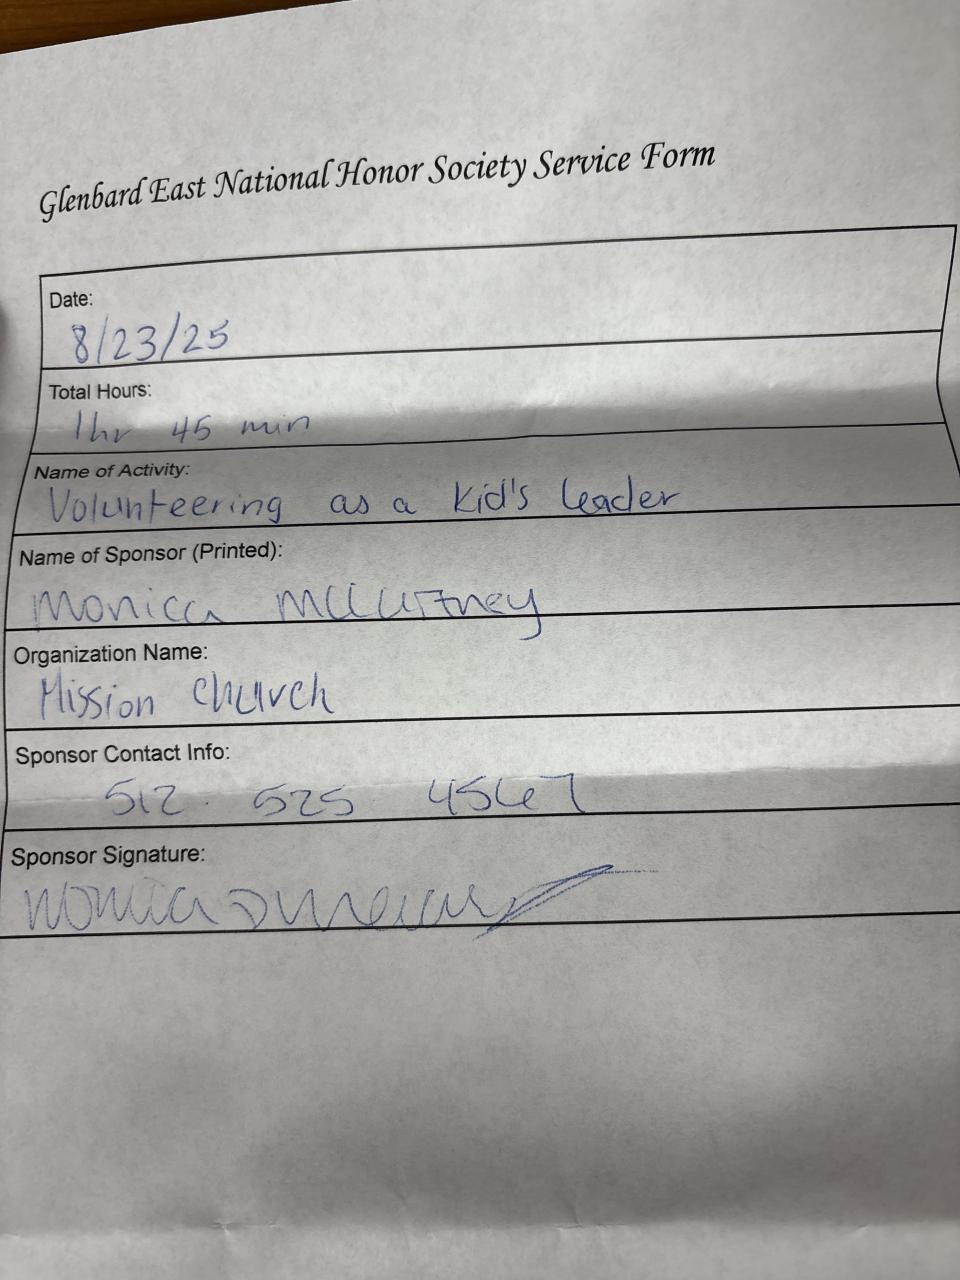 Glenbard East National Honor Society Service Form
Date:
8/23/25
Total Hours:
1hr 45 min
Name of Activity:
Volunteering as a kid's leader
Name of Sponsor (Printed):
Monica McCartney
Organization Name:
Mission Church
Sponsor Contact Info:
512 525 4567
Sponsor Signature:
Monica